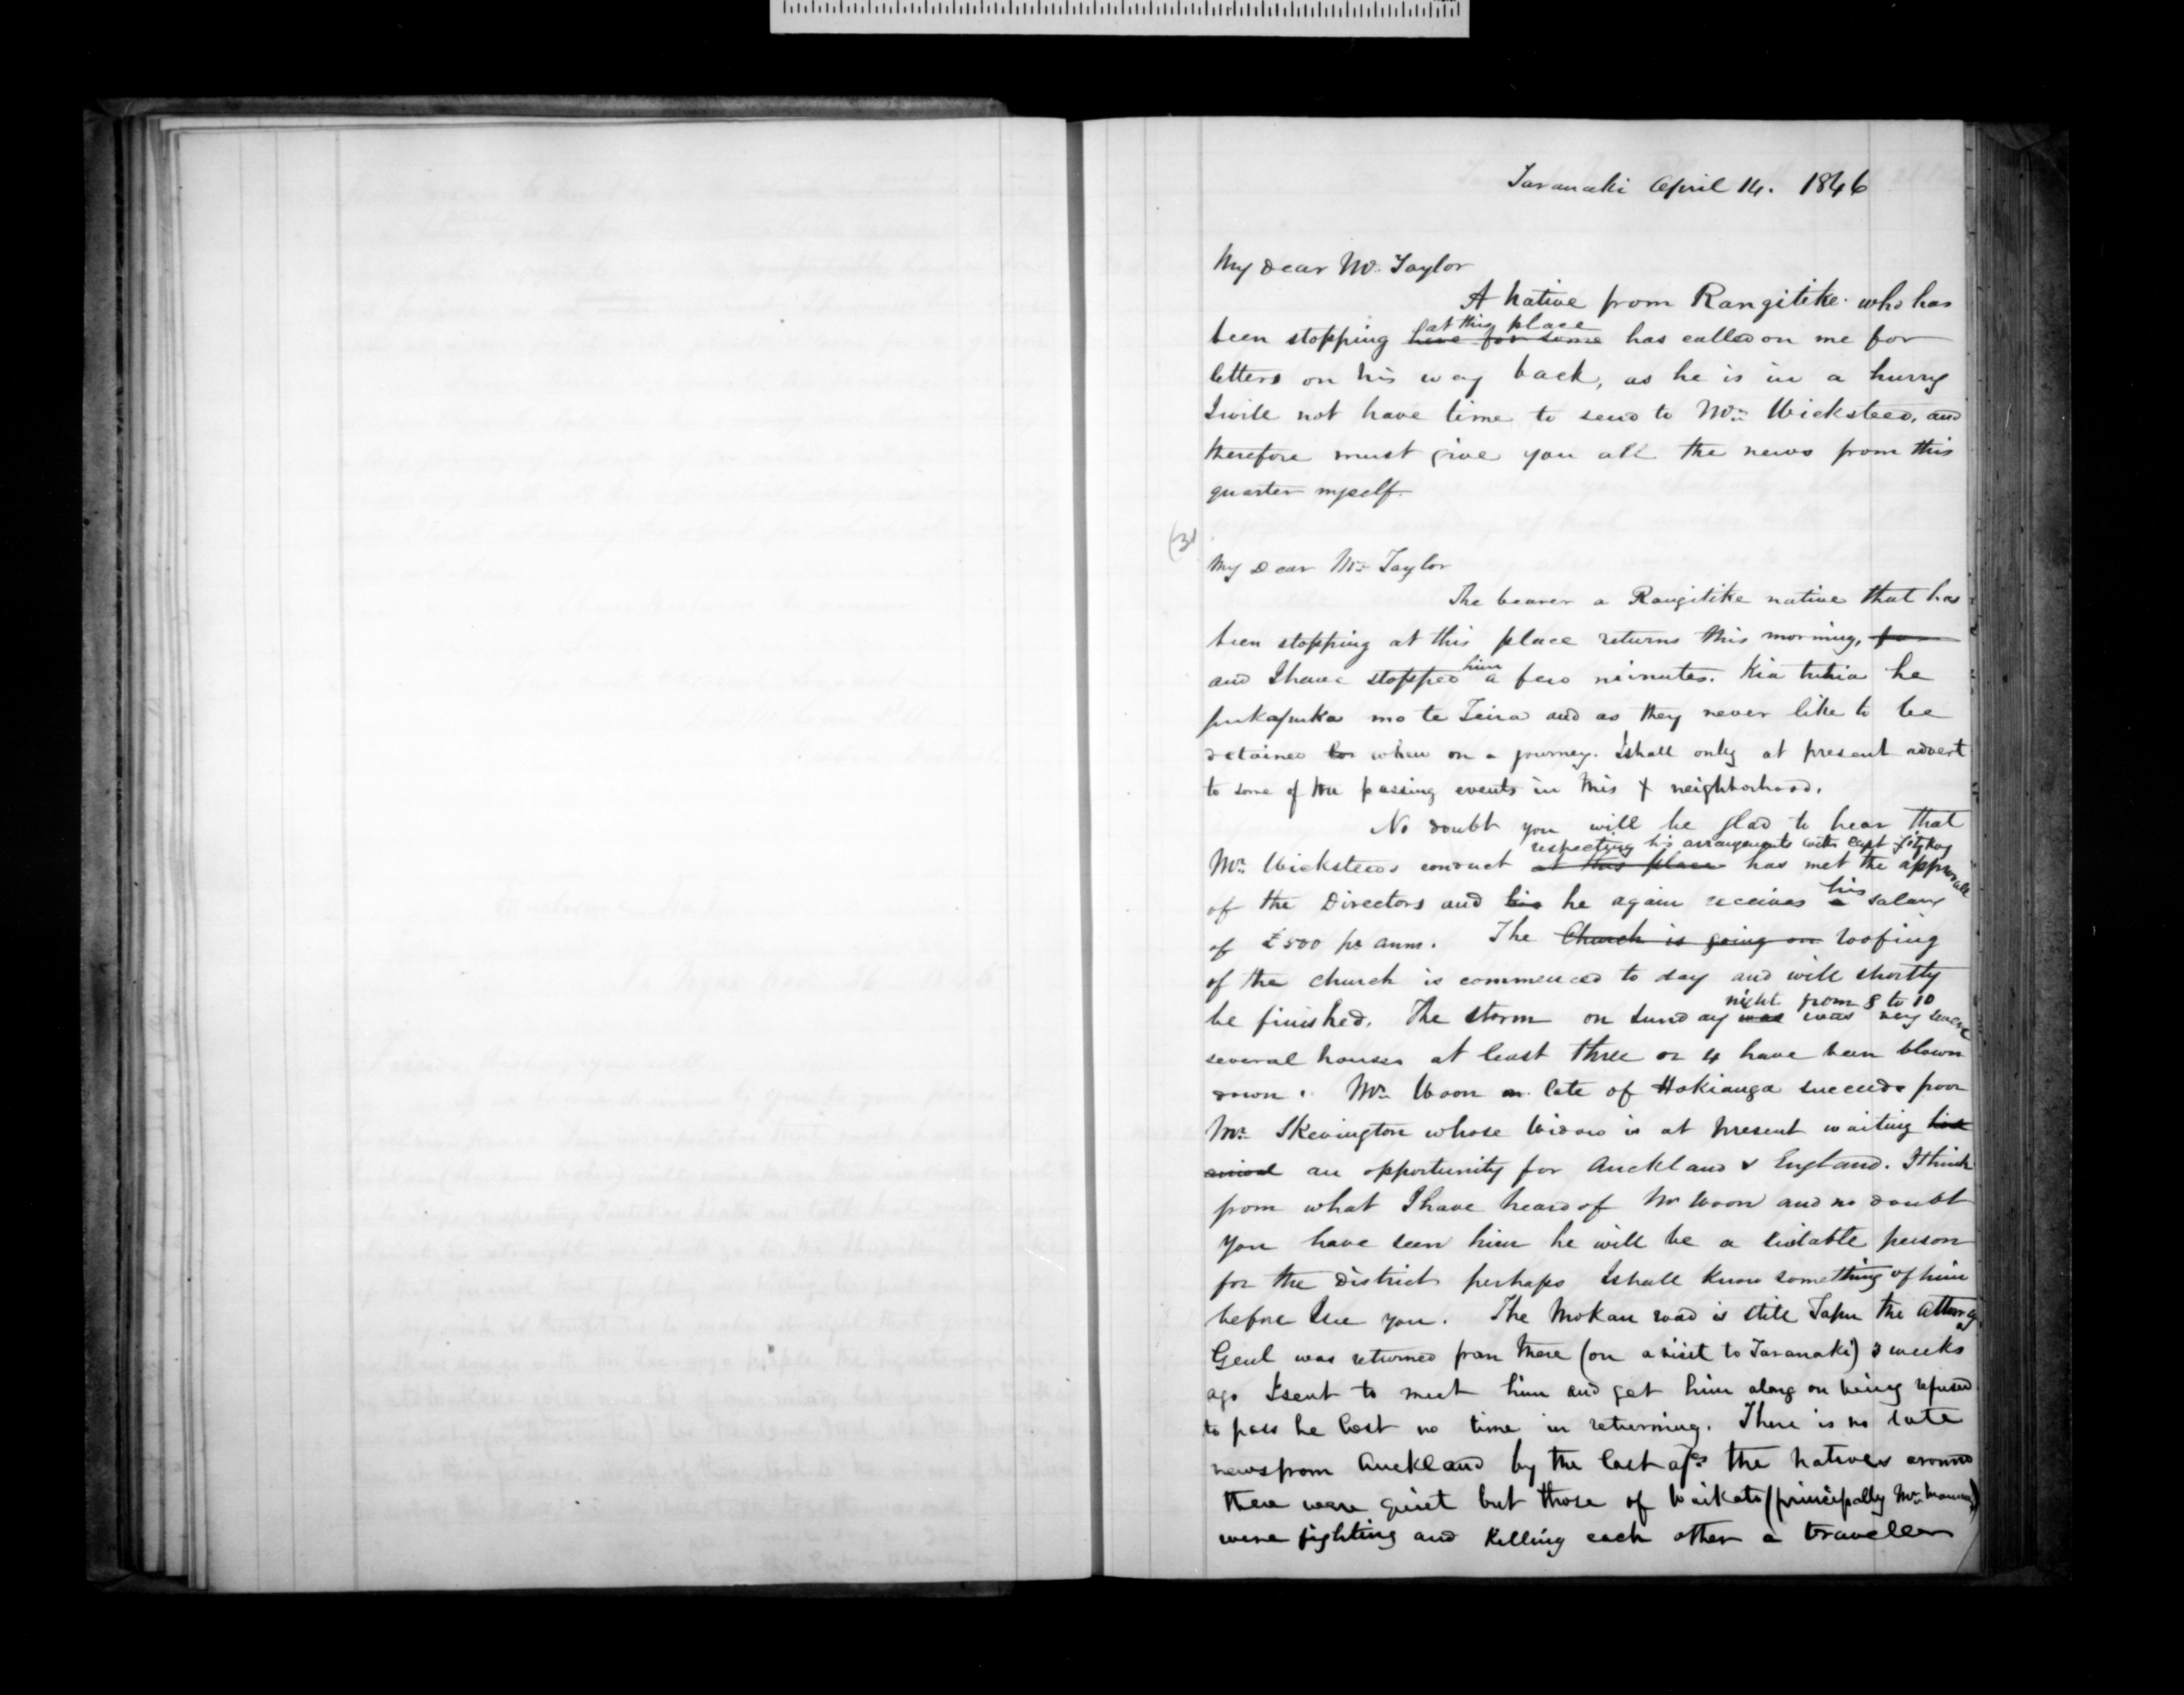 Taranaki April 14. 1846
My dear Mr. Taylor
A native from Rangitike who has
at this place
been stopping here for some has called on me for
letters on his way back, as he is in a hurry
I will not have time to send to Mr. Wicksteed, and
therefore must give you all the news from this
quarter myself.
(3)
My Dear Mr. Taylor
The bearer a Rangitike native that has
been stopping at this place returns this morning, for
him
and I have stopped a few minutes. Kia tuhia he
pukapuka mo te Teira and as they never like to be
detained when on a journey. I shall only at present advert
to some of the passing events in this neighborhood.
No doubt you will be glad to hear that
respecting his arrangements with Capt Fitzroy
Mr. Wicksteeds conduct at this place has met the approval
his
of the Directors and his he again receives a salary
of £500 pr annm. The Church is going on roofing
of the church is commenced to day and will shortly
night from 8 to 10
be finished. The storm on Sunday was was very severe
several houses at least three or 4 have been blown
down. Mr. Woon late of Hokianga succeeds poor
Mr. Skevington whose Widow is at present waiting his
arrival an opportunity for Auckland & England. I think
from what I have heard of Mr Woon and no doubt
you have seen him he will be a suitable person
for the district perhaps I shall know something of him
before I see you. The Mokau road is still Tapu the Attorney
Genl was returned from there (on a visit to Taranaki) 3 weeks
ago I sent to meet him and get him along on being refused
to pass he lost no time in returning. There is no late
news from Auckland by the last acs the natives around
there were quiet but those of Waikato (principally Mr.
were fighting and killing each other a traveller